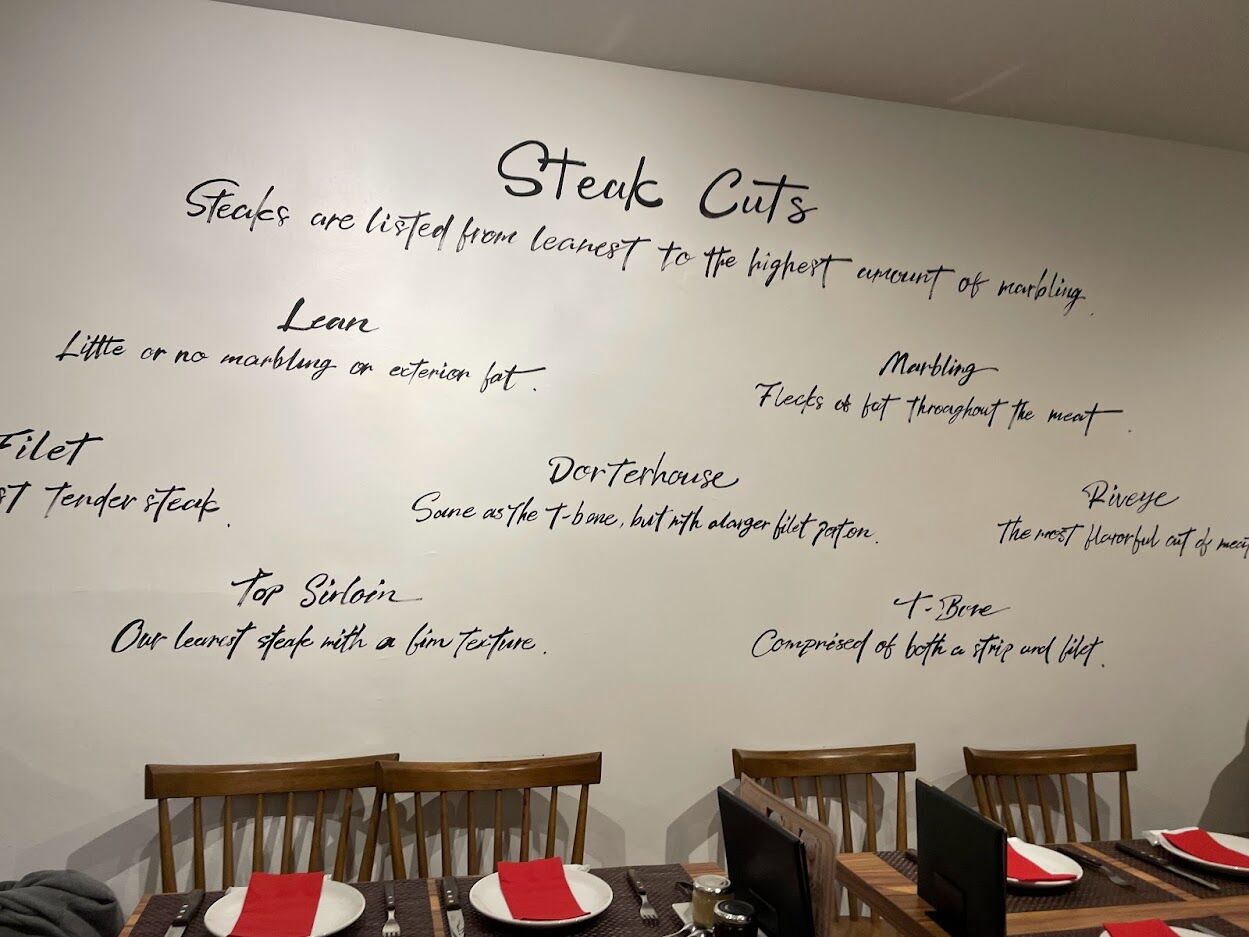 Steak Cuts
Steaks are listed from leanest to the highest amount of marbling.
Lean
Little or no marbling or exterior fat.
Marbling
Flecks of fat throughout the meat.
Filet
st tender steak.
Dorterhouse
Same as the T-bone, but with a larger filet
Riveye
The most flavorful cut of meat
Top Sirloin
Our leanest steak with a firm texture.
T-Bone
Comprised of both a strip and filet.